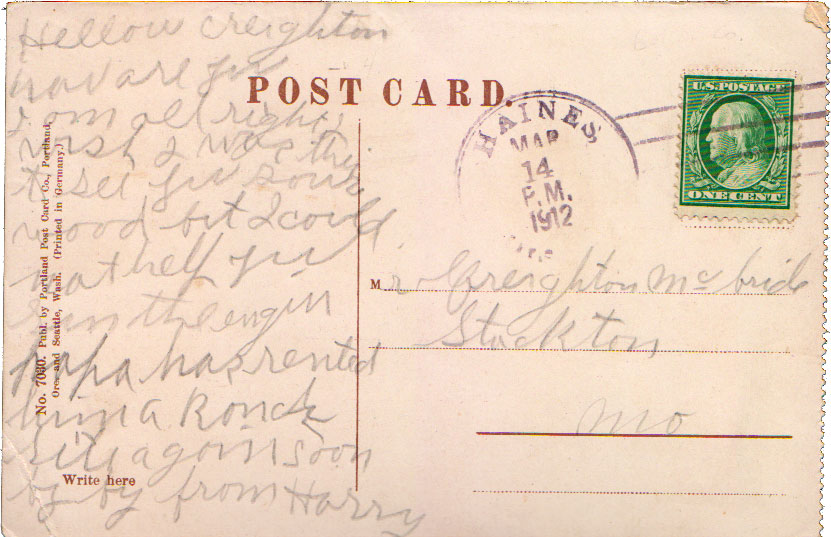 Hellow Creighton
how are you
I am all right
wish I was ther
to see you sour
wood but I could
not help you
run the engin
papa has rented
him a Ranch
rite again soon
by by from Harry
Write here
No. 7030. Publ. by Portland Post Card Co., Portland,
Ore. and Seattle, Wash. (Printed in Germany.)
POST CARD.
HAINES
MAR
14
P.M.
1912
U.S. POSTAGE
ONE CENT
Mr Creighton Mcbride
Stockton
Mo